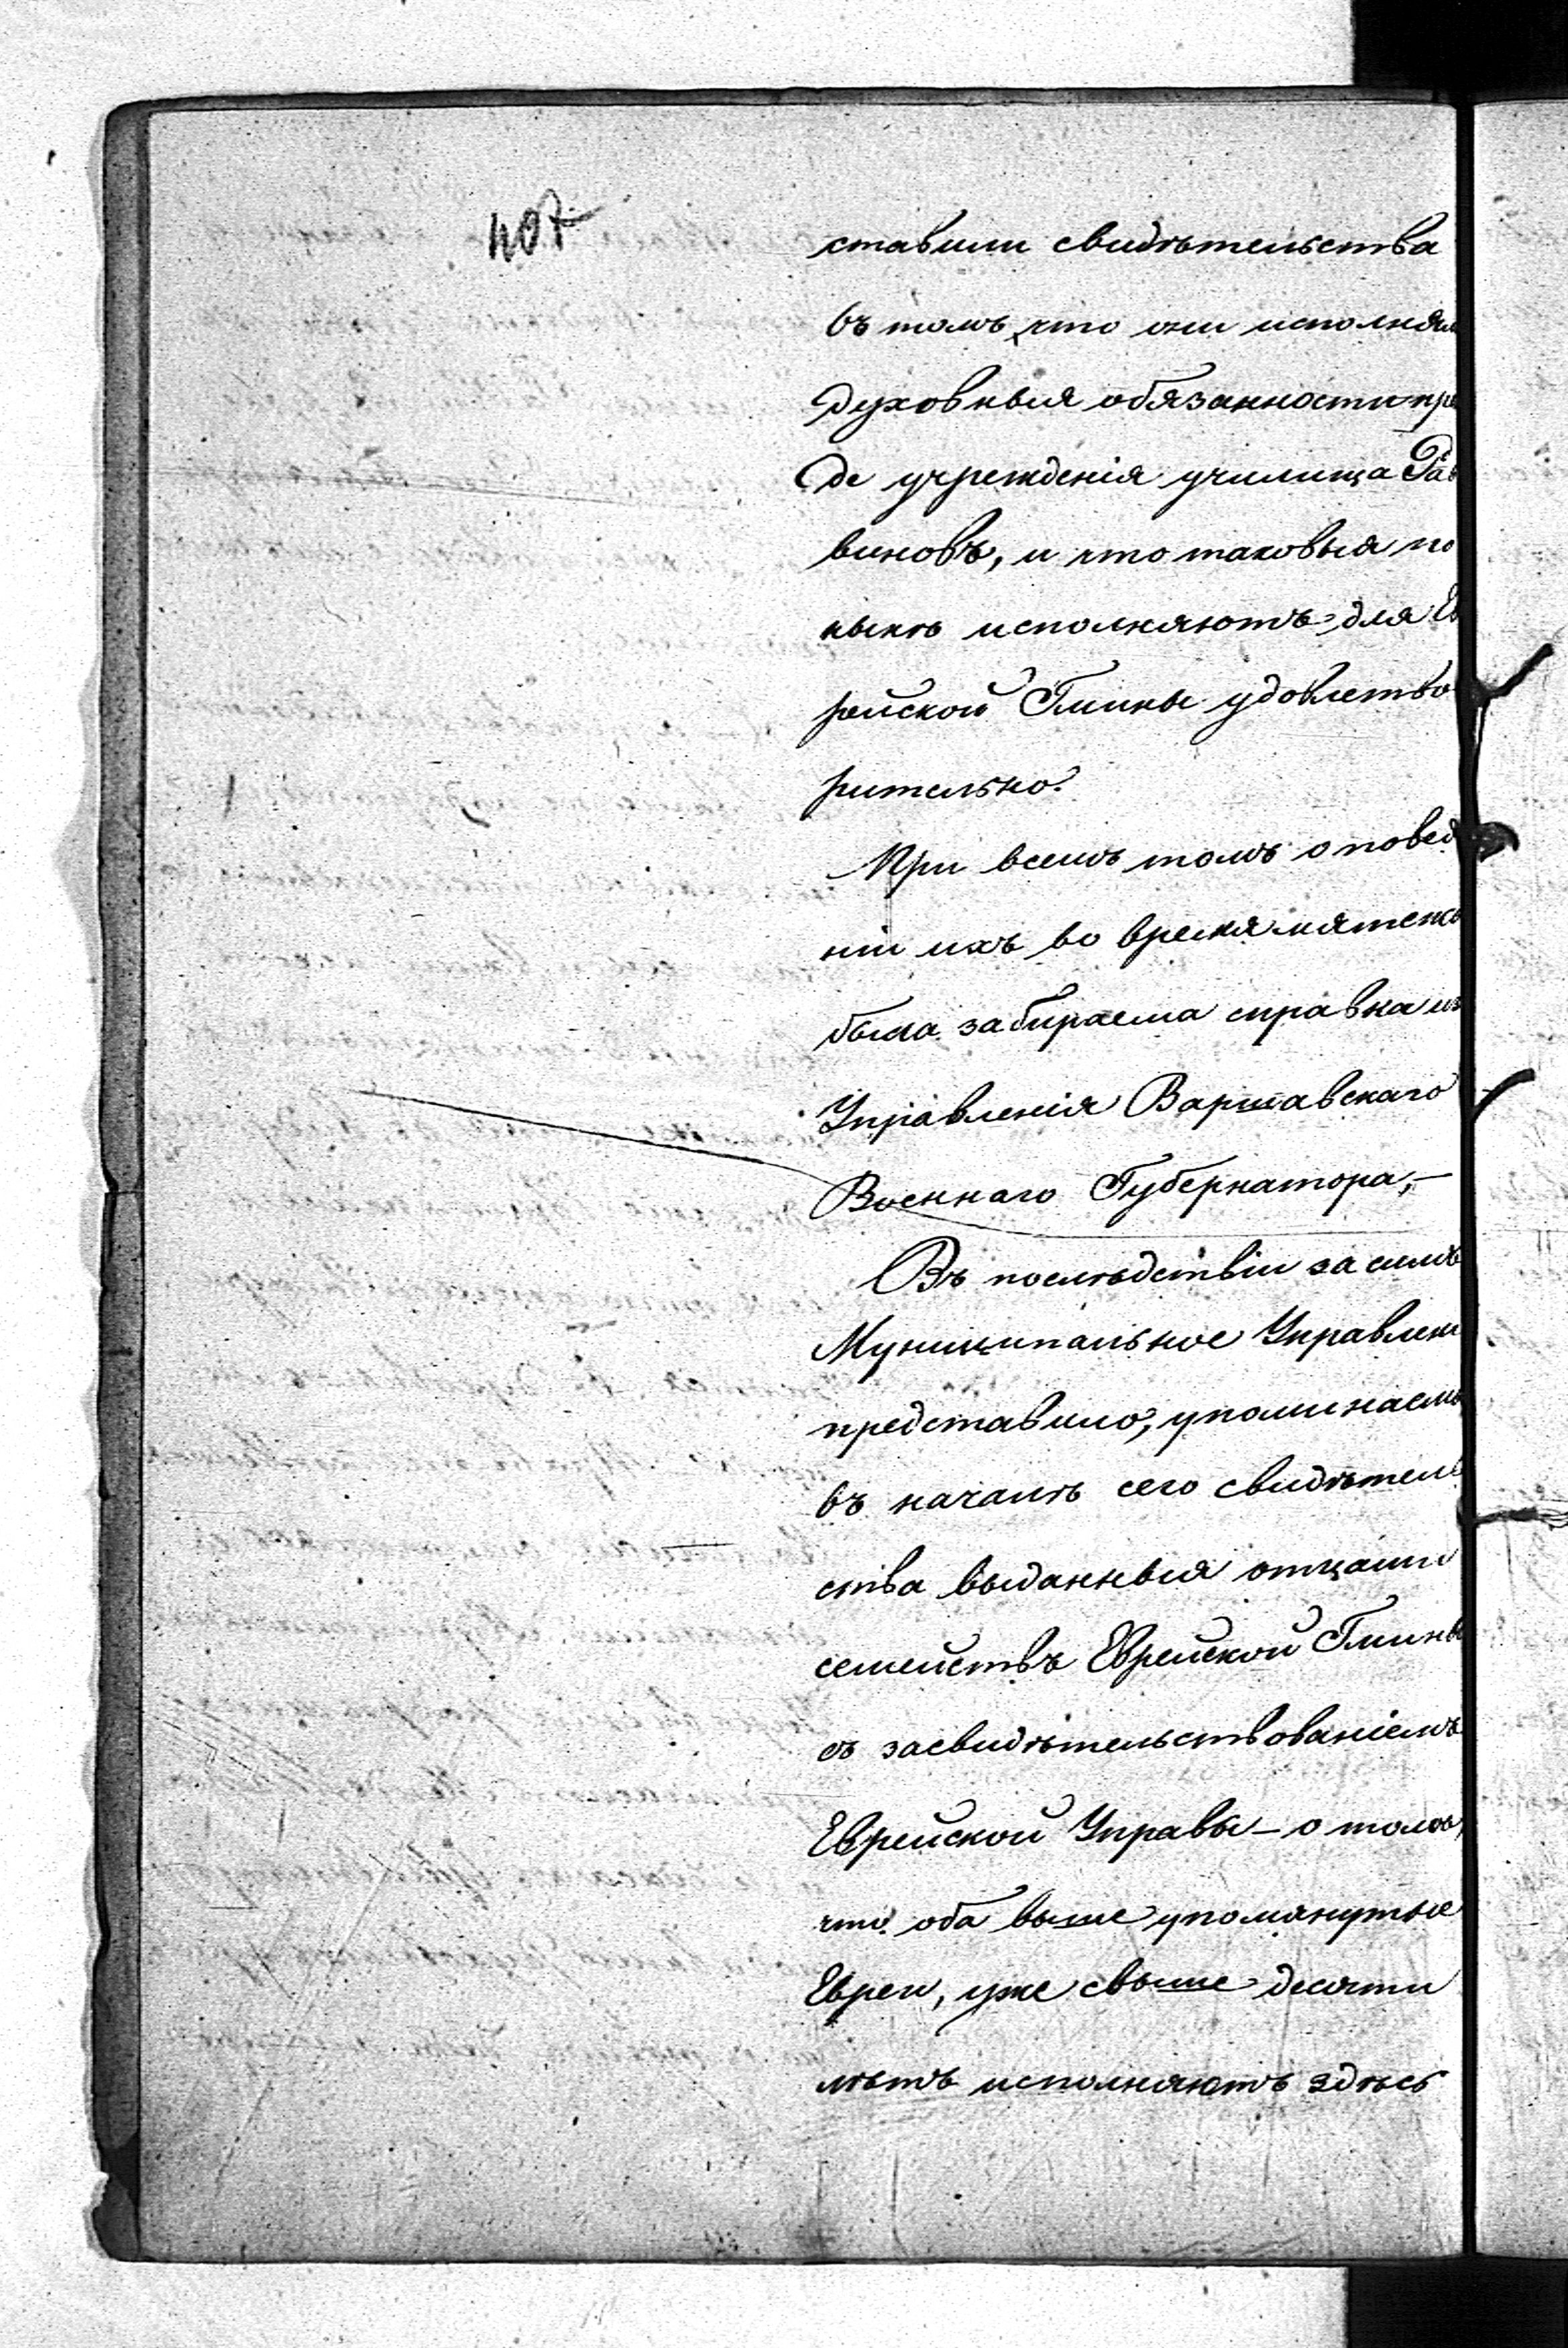 407
ставили свидѣтельства
въ томъ, что они исполнял
духовныя обязанности пре
де учрежденія училища Рав
виновъ, и что таковыя по
нынѣ исполняютъ для Ев
рейской Гмины удовлетво
рительно.
При всемъ томъ о повед
ніи ихъ во время мятежа
была забираема справка из
Управленія Варшавскаго
Военнаго Губернатора,—
Въ послѣдствіи за симъ
Муниципальное Управлени
представило, упоминаемы
въ началѣ сего свидѣтель
ства выданныя отцами
семействъ Еврейской Гмины
съ засвидѣтельствованіемъ
Еврейской Управы — о томъ,
что оба выше упомянутые
Евреи, уже свыше десяти
лѣтъ исполняютъ здѣсь